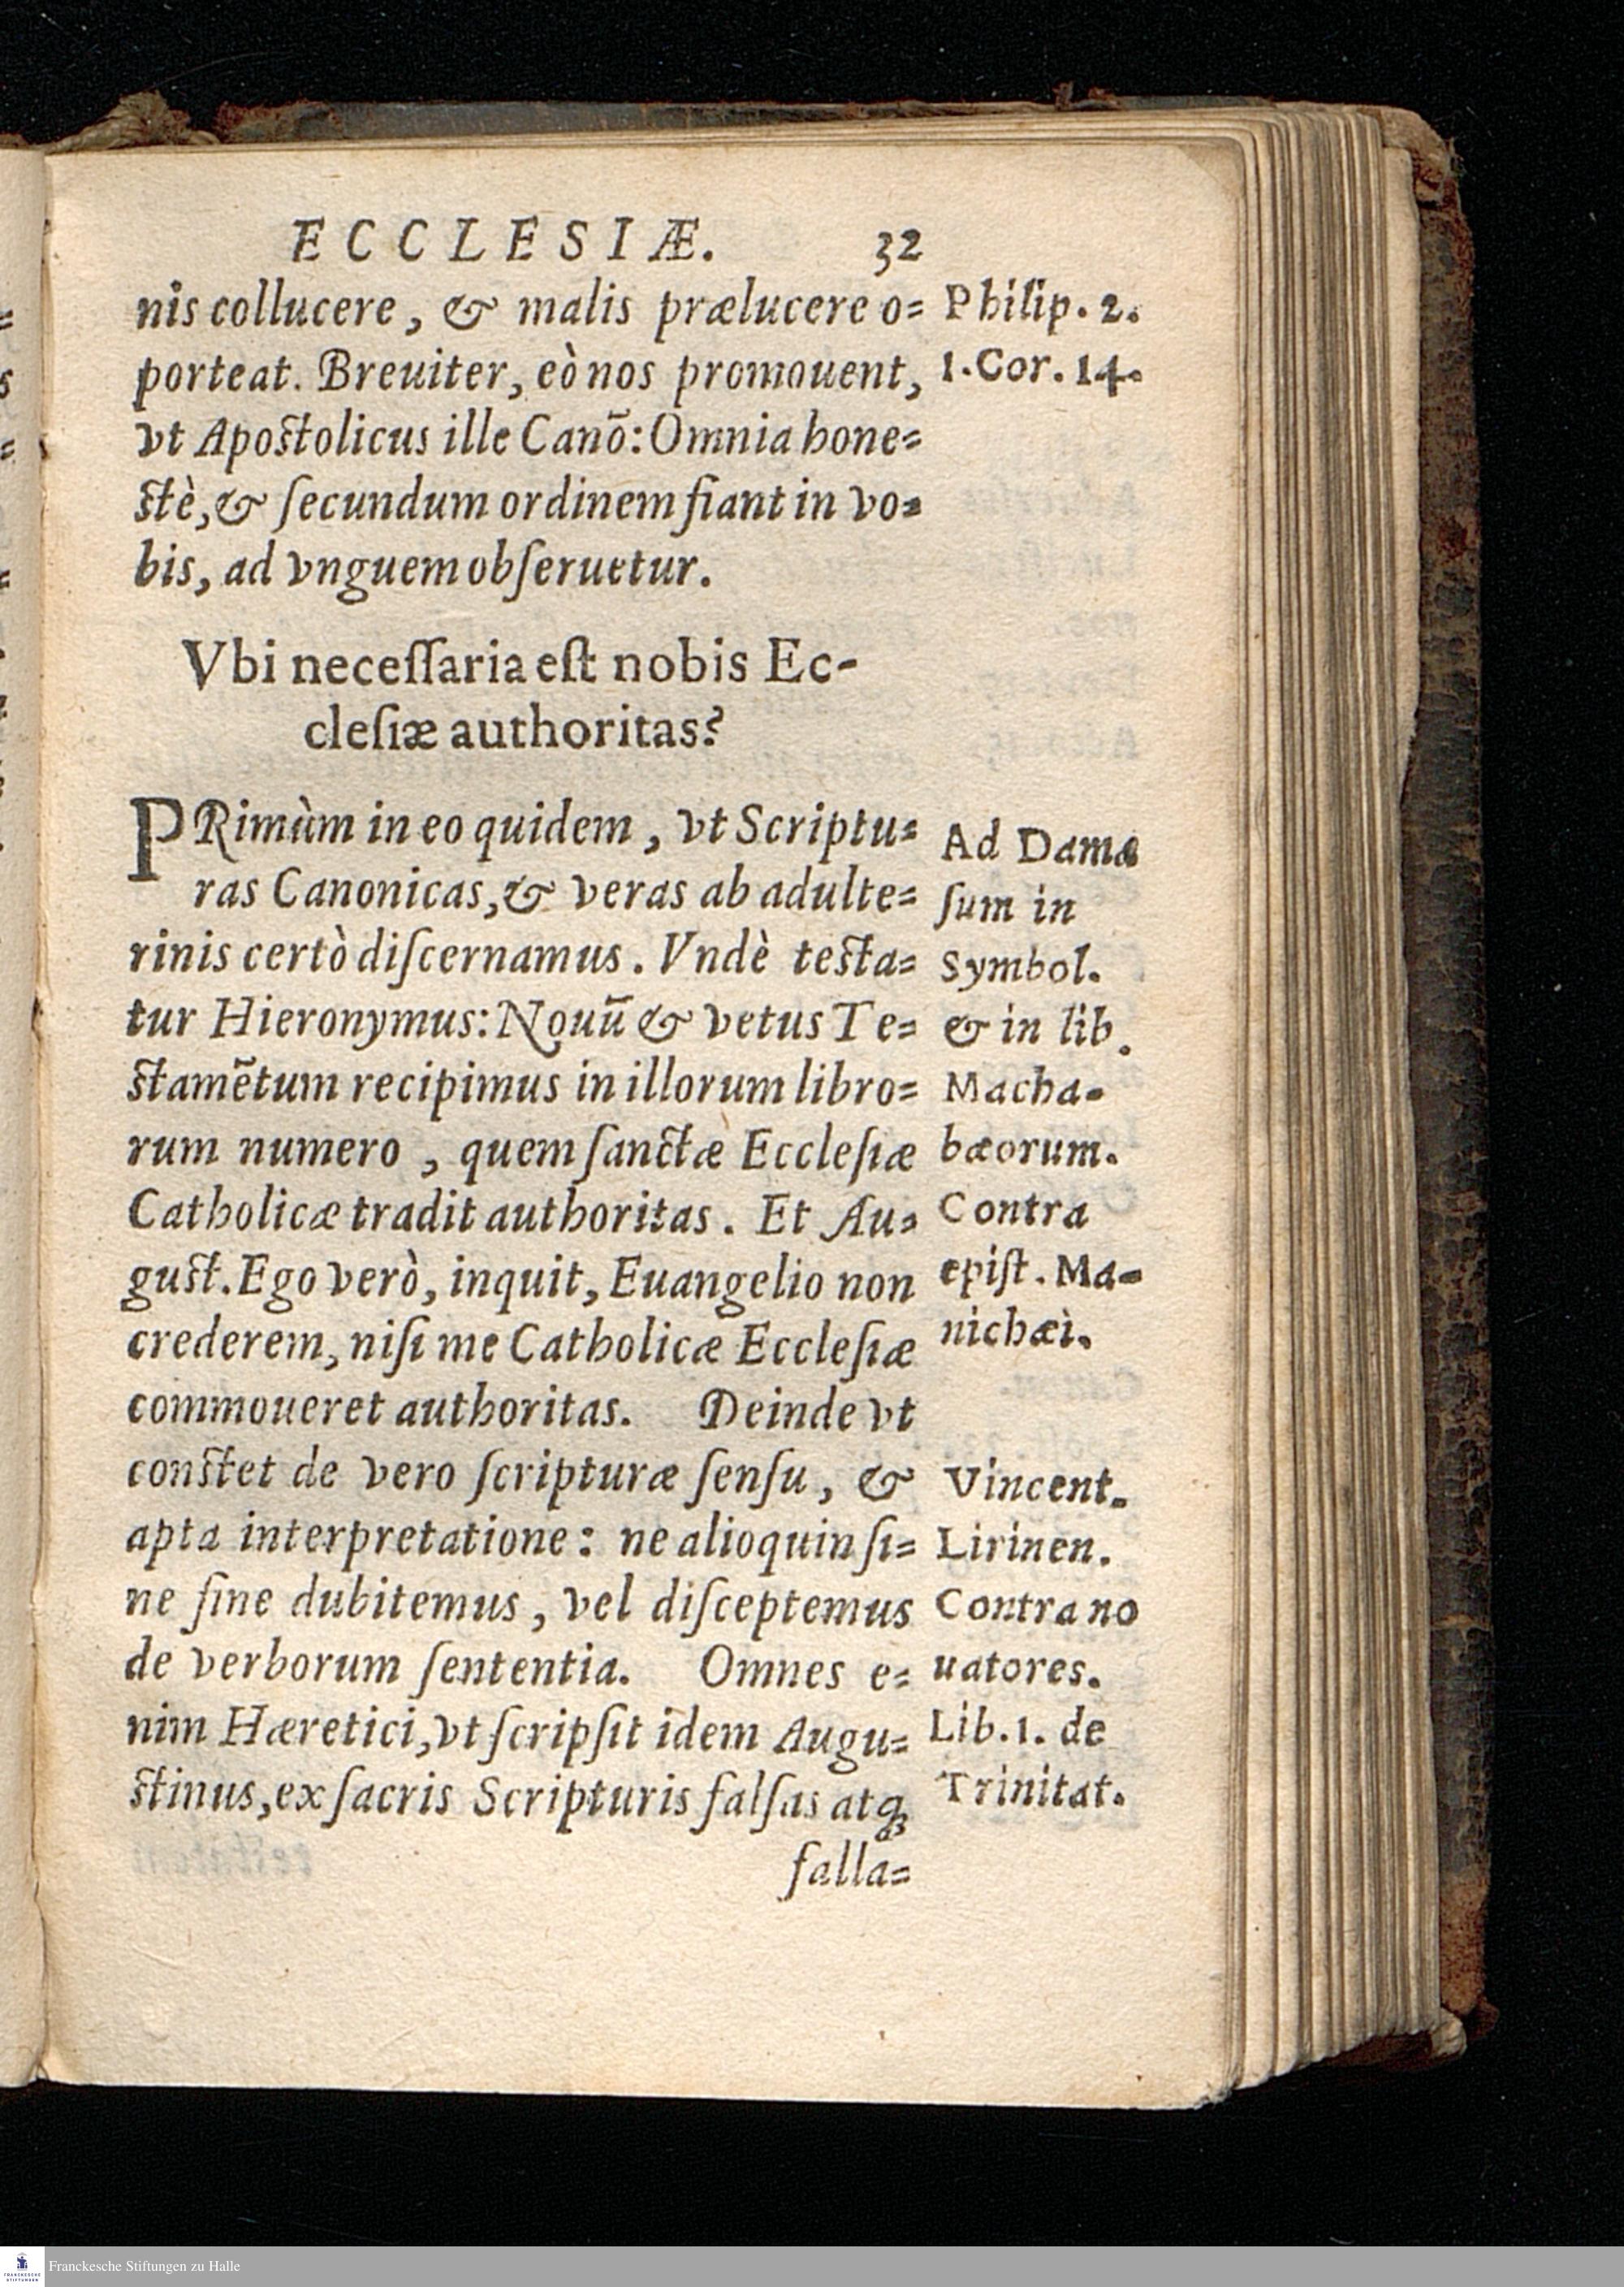 ECCLESIÆ. 32
nis collucere, & malis prælucere o=
porteat. Breuiter, eò nos promouent,
vt Apoſtolicus ille Canō: Omnia hone=
ſtè, & ſecundum ordinem fiant in vo=
bis, ad vnguem obſeruetur.
Philip. 2.
1. Cor. 14.
Vbi neceſſaria eſt nobis Ec-
cleſiæ authoritas?
PRimùm in eo quidem, vt Scriptu=
ras Canonicas, & veras ab adulte=
rinis certò diſcernamus. Vndè teſta=
tur Hieronymus: Nouū & vetus Te=
ſtamētum recipimus in illorum libro=
rum numero, quem ſanctæ Eccleſiæ
Catholicæ tradit authoritas. Et Au=
guſt. Ego verò, inquit, Euangelio non
crederem, niſi me Catholicæ Eccleſiæ
commoueret authoritas. Deinde vt
conſtet de vero ſcripturæ ſenſu, &
apta interpretatione: ne alioquin ſi=
ne fine dubitemus, vel diſceptemus
de verborum ſententia. Omnes e=
nim Hæretici, vt ſcripſit idem Augu=
ſtinus, ex ſacris Scripturis falſas atqꝫ
falla=
Ad Dama
ſum in
Symbol.
& in lib.
Macha-
bæorum.
Contra
epiſt. Ma-
nichæi.
Vincent.
Lirinen.
Contra no
uatores.
Lib. 1. de
Trinitat.
FRANCKESCHE
STIFTUNGEN
Franckesche Stiftungen zu Halle